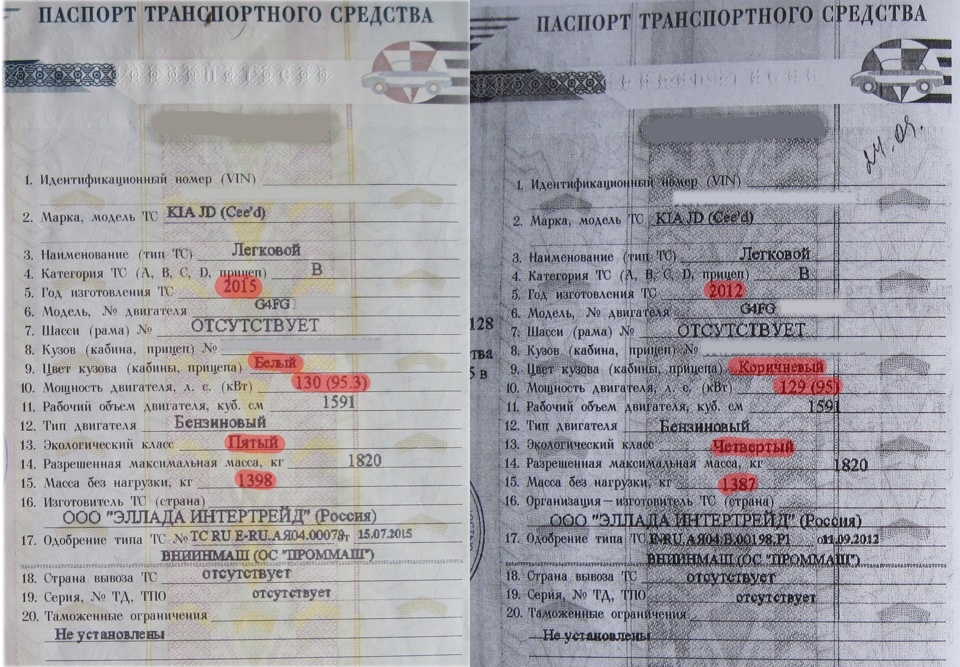 ПАСПОРТ ТРАНСПОРТНОГО СРЕДСТВА
1. Идентификационный номер (VIN)
2. Марка, модель ТС KIA JD (Cee'd)
3. Наименование (тип ТС) Легковой
4. Категория ТС (A, B, C, D, прицеп) B
5. Год изготовления ТС 2015
6. Модель, № двигателя G4FG
7. Шасси (рама) № ОТСУТСТВУЕТ
8. Кузов (кабина, прицеп) №
9. Цвет кузова (кабины, прицепа) Белый
10. Мощность двигателя, л. с. (кВт) 130 (95.3)
11. Рабочий объем двигателя, куб. см 1591
12. Тип двигателя Бензиновый
13. Экологический класс Пятый
14. Разрешенная максимальная масса, кг 1820
15. Масса без нагрузки, кг 1398
16. Изготовитель ТС (страна)
ООО "ЭЛЛАДА ИНТЕРТРЕЙД" (Россия)
17. Одобрение типа ТС № ТС RU E-RU.АЯ04.00078 от 15.07.2015
ВНИИНМАШ (ОС "ПРОММАШ")
18. Страна вывоза ТС отсутствует
19. Серия, № ТД, ТПО отсутствует
20. Таможенные ограничения
Не установлены
ПАСПОРТ ТРАНСПОРТНОГО СРЕДСТВА
24.09.
1. Идентификационный номер (VIN)
2. Марка, модель ТС KIA JD (Cee'd)
3. Наименование (тип ТС) Легковой
4. Категория ТС (A, B, C, D, прицеп) B
5. Год изготовления ТС 2012
6. Модель, № двигателя G4FG
128
7. Шасси (рама) № ОТСУТСТВУЕТ
8. Кузов (кабина, прицеп) №
тва
9. Цвет кузова (кабины, прицепа) Коричневый
5 в
10. Мощность двигателя, л. с. (кВт) 129 (95)
11. Рабочий объем двигателя, куб. см 1591
12. Тип двигателя Бензиновый
13. Экологический класс Четвертый
14. Разрешенная максимальная масса, кг 1820
15. Масса без нагрузки, кг 1387
16. Организация—изготовитель ТС (страна)
ООО "ЭЛЛАДА ИНТЕРТРЕЙД" (Россия)
17. Одобрение типа ТС № E-RU.АЯ04.В.00198.Р1 от 11.09.2012
ВНИИНМАШ (ОС "ПРОММАШ")
18. Страна вывоза ТС отсутствует
19. Серия, № ТД, ТПО отсутствует
20. Таможенные ограничения
Не установлены